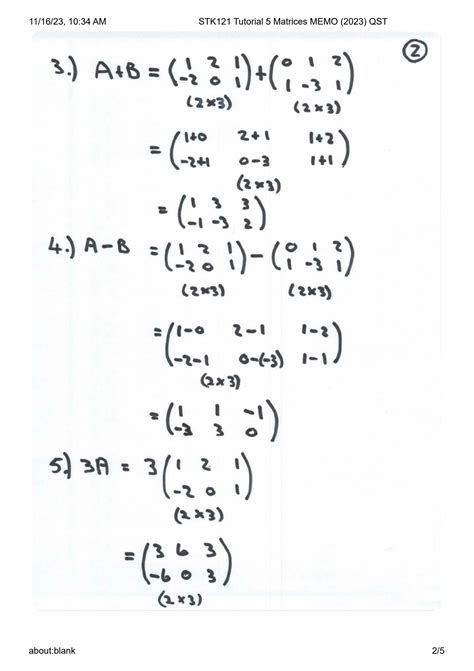 11/16/23, 10:34 AM STK121 Tutorial 5 Matrices MEMO (2023) QST
2
3.) A+B = (1 2 1) + (0 1 2)
(-2 0 1) (1 -3 1)
(2×3) (2×3)
= (1+0 2+1 1+2)
(-2+1 0-3 1+1)
(2×3)
= (1 3 3)
(-1 -3 2)
4.) A-B = (1 2 1) - (0 1 2)
(-2 0 1) (1 -3 1)
(2×3) (2×3)
= (1-0 2-1 1-2)
(-2-1 0-(-3) 1-1)
(2×3)
= (1 1 -1)
(-3 3 0)
5.) 3A = 3 (1 2 1)
(-2 0 1)
(2×3)
= (3 6 3)
(-6 0 3)
(2×3)
about:blank 2/5